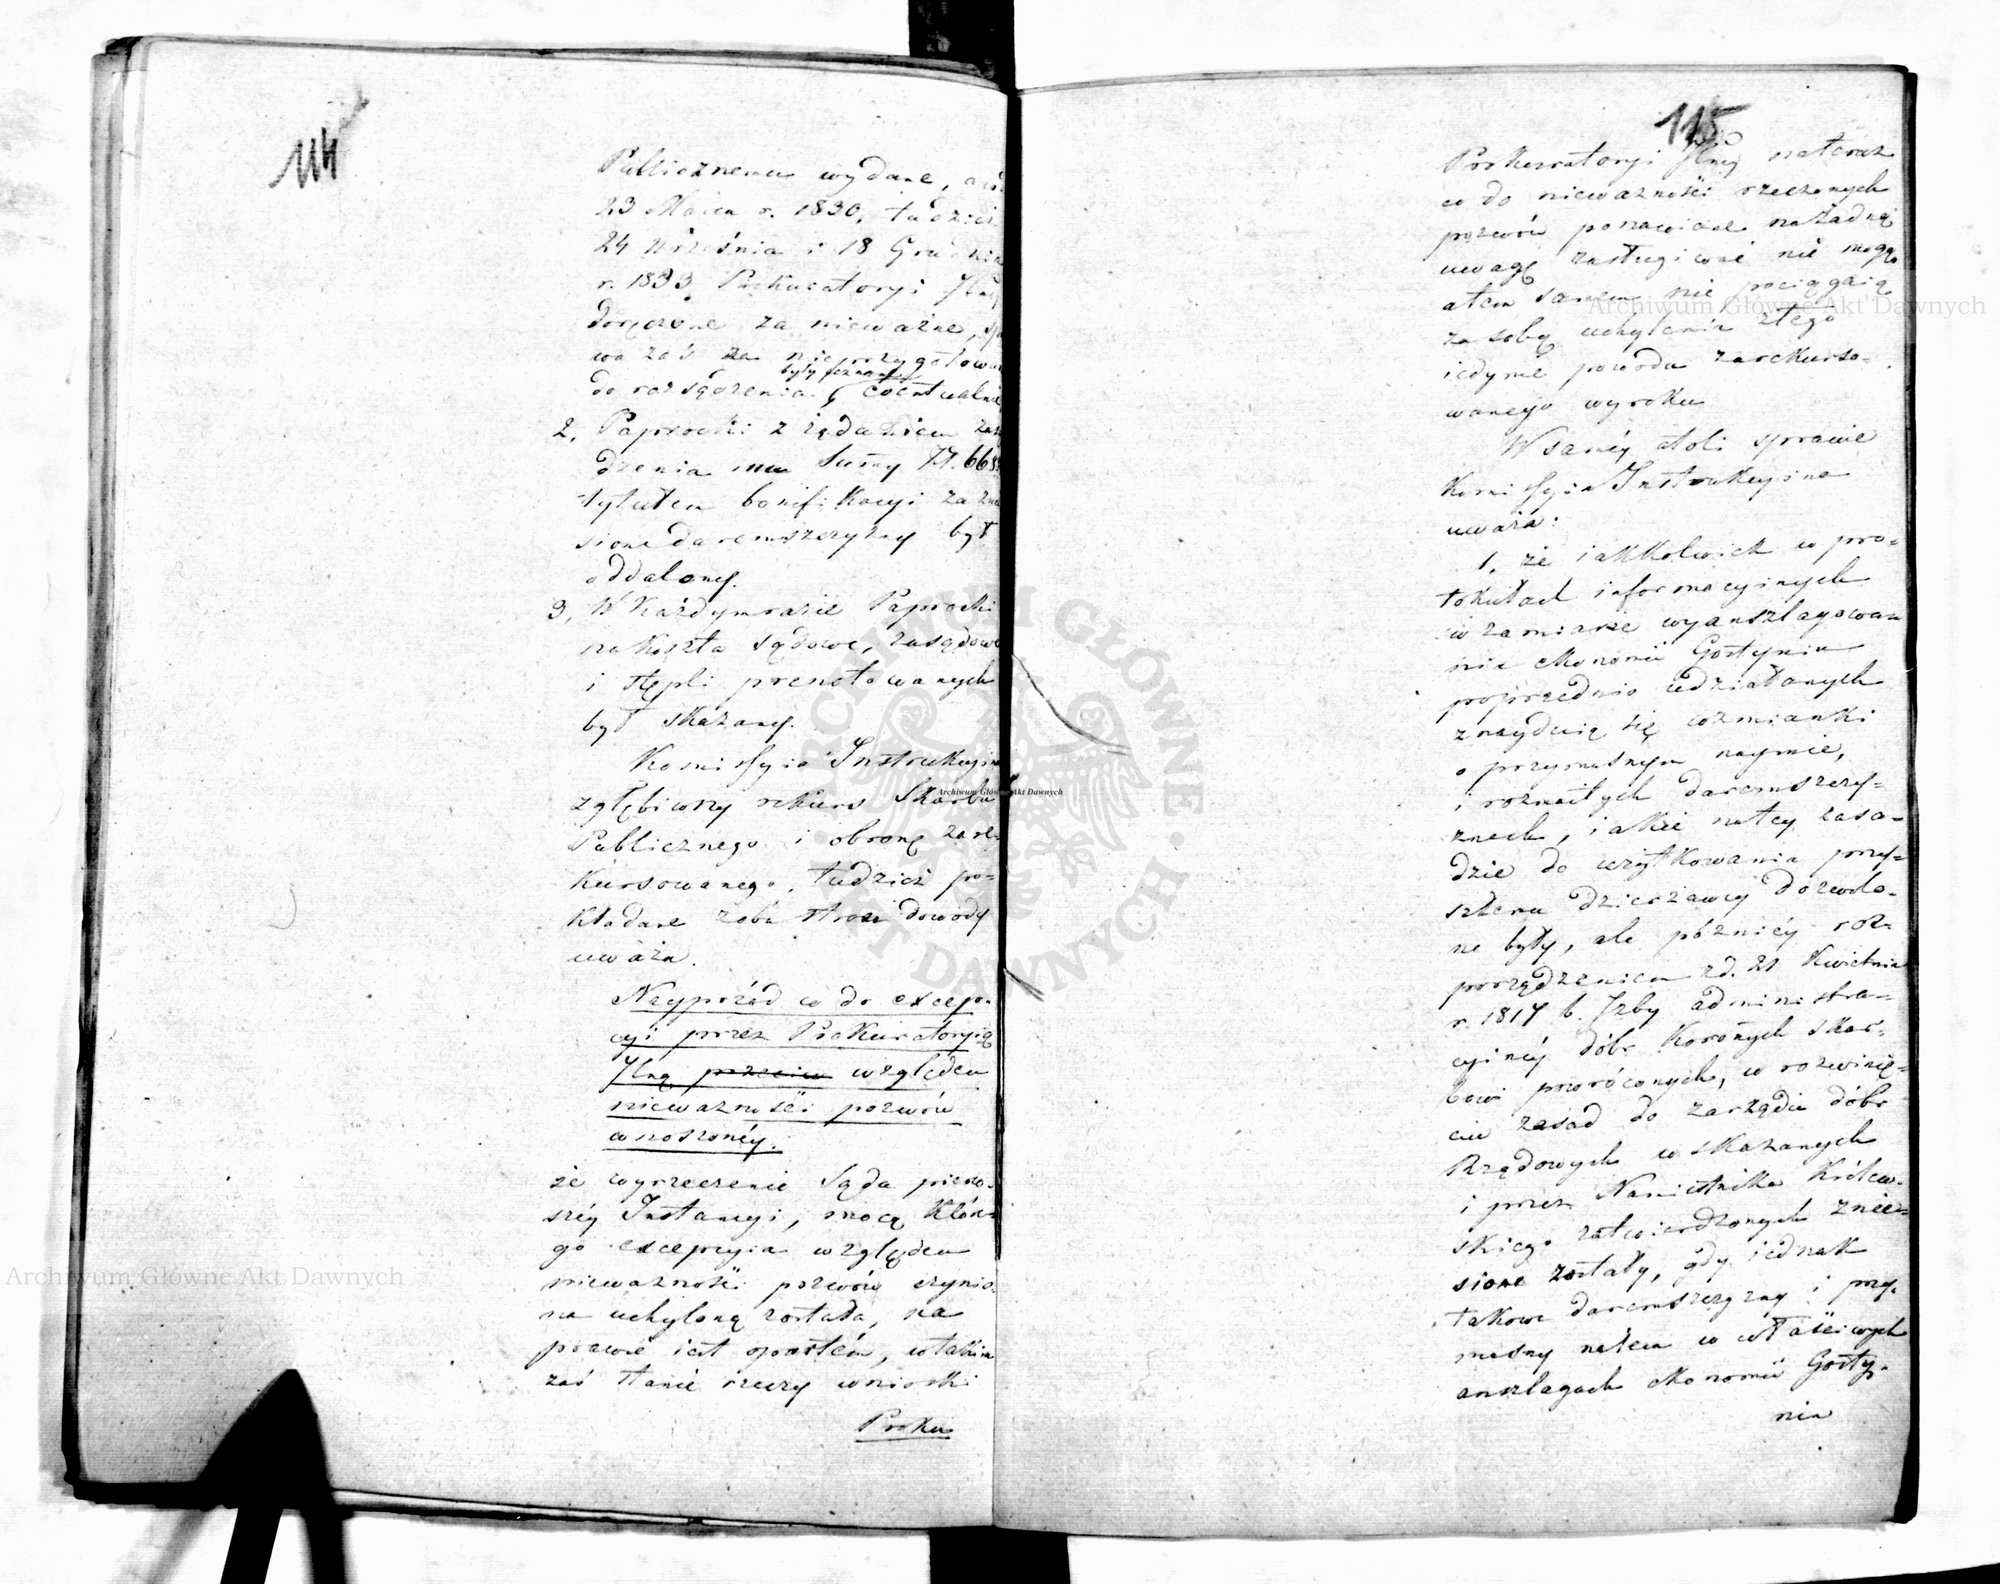 114
Publicznemu wydane, a w
23 Marca r. 1830, tudzież
24 Września i 18 Grudnia
r. 1833 Prokuratoryi Jlnéy
doręczone za nieważne, spra
wa zaś za nieprzygotowaną
były uznane
do rozsądzenia, eventualnie
2, Paprocki z żądaniem zasą
dzenia mu Summy Zł. 668
tytułem bonifikacyi za znie
sione daremszczyzny był
oddalony.
3, W każdym razie Paprocki
na koszta sądowe, zasądowe
i stępli prenotowanych
był skazany.
Kommissyia Instrukcyina
zgłębiwszy rekurs Skarbu
Publicznego i obronę zare-
kursowanego, tudzież po-
kładane z obu stron dowody
uważa.
Nayprzód co do excep-
cyi przez Prokuratoryią
Jlną przeciw względem
nieważności pozwów
wnoszonéy.
że wyrzeczenie Sądu pierw-
széy Instancyi, mocą któré-
go excepcyia względem
nieważności pozwów czynio-
na uchyloną została, na
prawie iest oparteḿ, w takim
zaś stanie rzeczy wnioski
Proku
115
Prokuratoryi Jlnéy na teraz
co do nieważności rzeczonych
pozwów ponawiane na żadną
uwagę zasługiwać nie mogą
a tem samem nie pociągaią
za sobą uchylenia z tego
iedynie powodu zarekurso-
wanego wyroku
W saméy atoli sprawie
Kommissyia Instrukcyina
uważa:
1, że iakkolwiek w pro-
tokułach informacyinych
w zamiarze wyanszlagowa-
nia ekonomii Gostynin
poprzednio udziałanych
znayduią się wzmianki
o przymusnym naymie,
i rozmaitych daremszczy-
znach, iakie na tey zasa-
dzie do użytkowania przy-
szłemu dzierżawcy dozwolo-
ne były, ale późniéy roz-
porządzeniem z d. 21 Kwietnia
r. 1817 b. Izby administra-
cyinéy dóbr Koronnych Skar-
bowi powróconych, w rozwinię-
ciu zasad do zarządu dóbr
Rządowych wskazanych
i przez Namiestnika Królew-
skiego zatwierdzonych znie-
sione zostały, gdy iednak
takowe daremszczyzny i przy-
musny naiem w właściwych
anszlagach ekonomii Gosty-
nin
Archiwum Główne Akt Dawnych
Archiwum Główne Akt Dawnych
Archiwum Główne Akt Dawnych
ARCHIWUM GŁÓWNE · AKT DAWNYCH ·